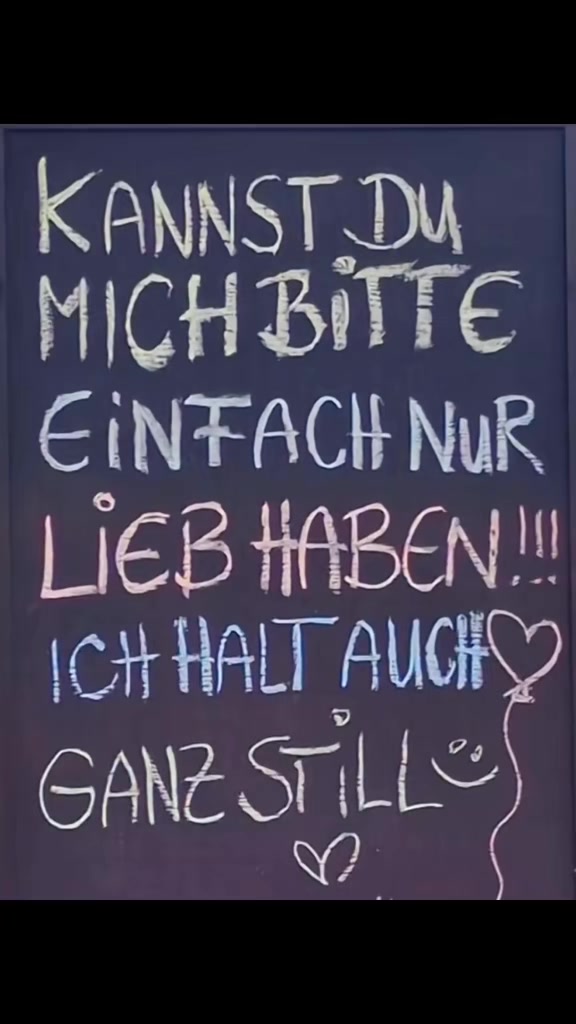 KANNST DU
MICH BITTE
EINFACH NUR
LIEB HABEN!!!
ICH HALT AUCH
GANZ STILL